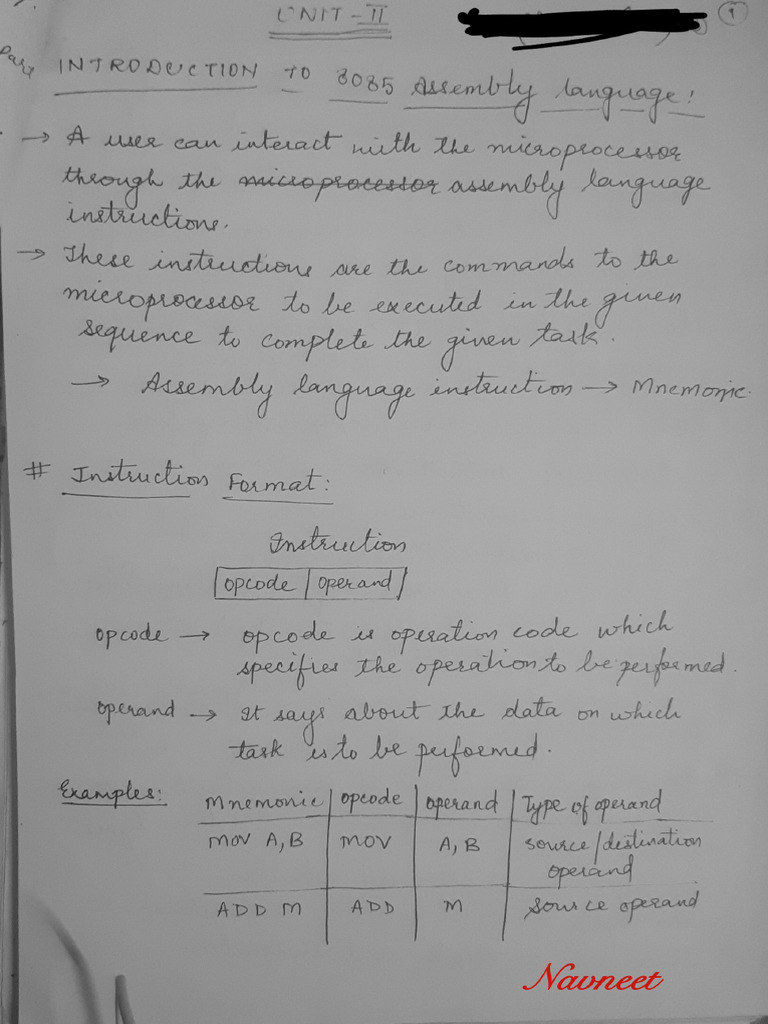 UNIT-II
1
Part
INTRODUCTION TO 8085 Assembly language:
→ A user can interact with the microprocessor
through the microprocessor assembly language
instructions.
→ These instructions are the commands to the
microprocessor to be executed in the given
sequence to complete the given task.
→ Assembly language instruction → Mnemonic.
# Instruction Format:
Instruction
opcode | operand
opcode → opcode is operation code which
specifies the operation to be performed.
operand → It says about the data on which
task is to be performed.
Examples:
Mnemonic | opcode | operand | Type of operand
MOV A, B | MOV | A, B | source/destination
operand
ADD M | ADD | M | source operand
Navneet